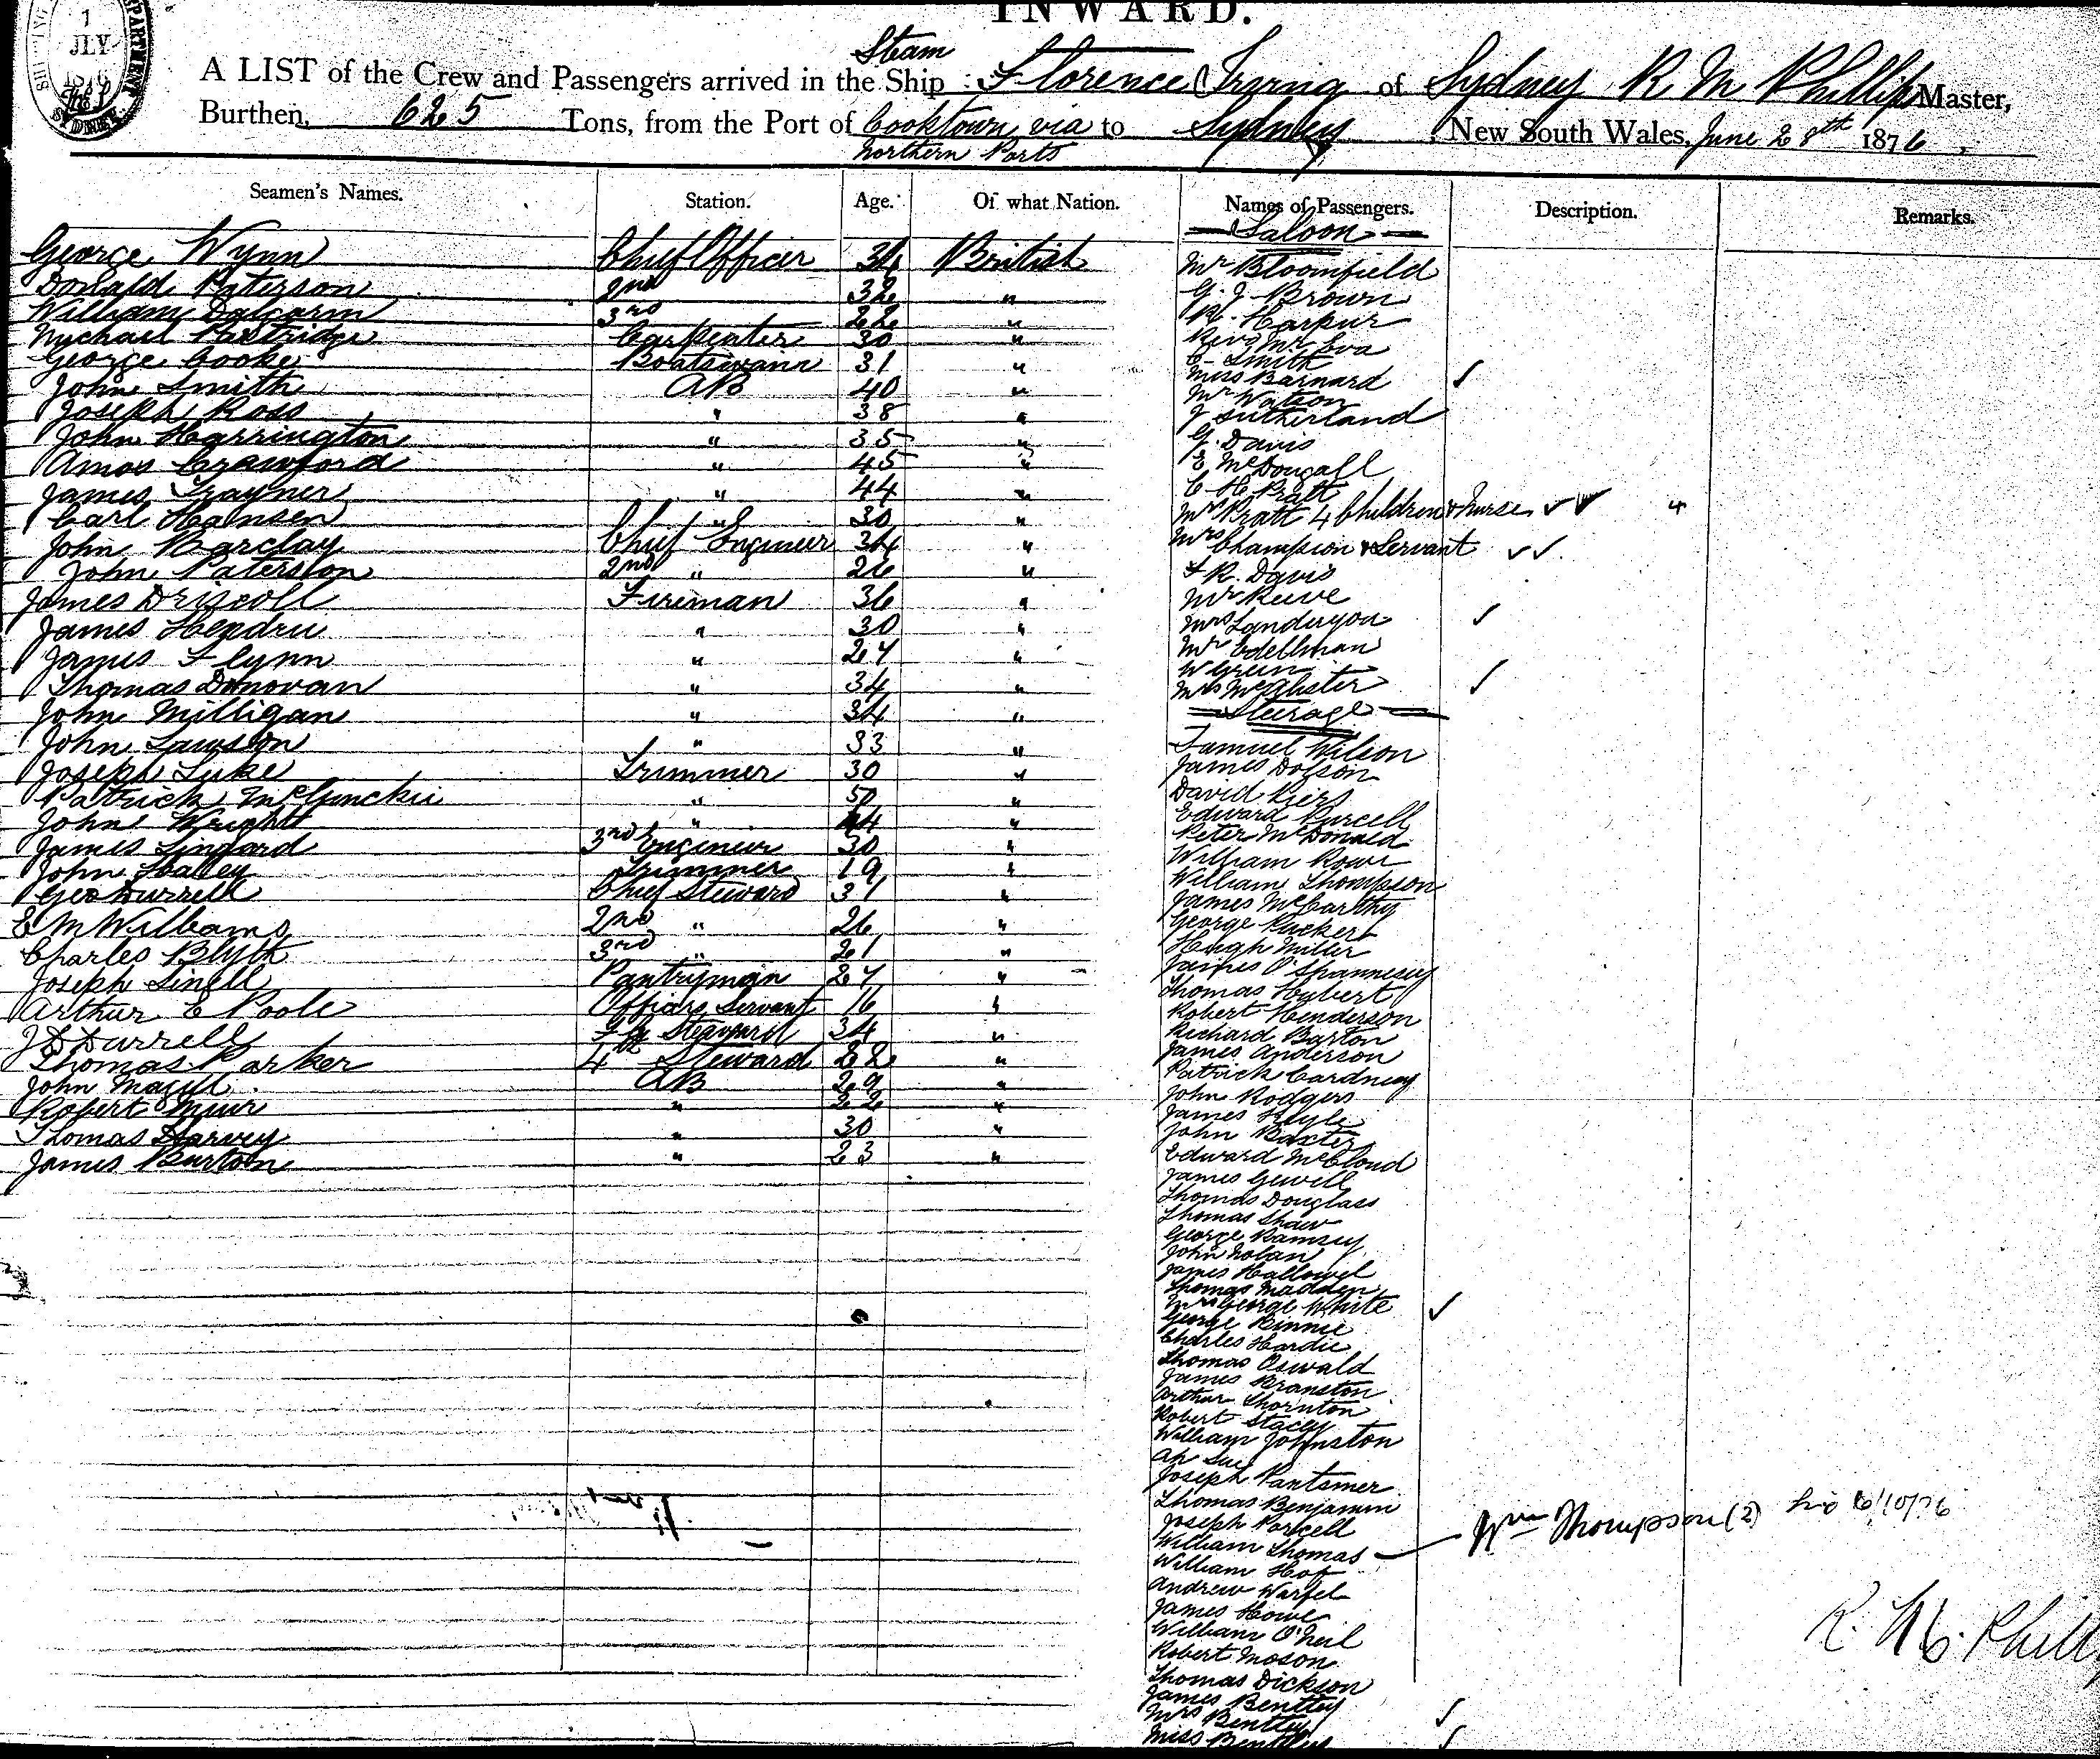 INWARD.
1
JLY
1876
SYDNEY
Steam
A LIST of the Crew and Passengers arrived in the Ship Florence Irving of Sydney R M Phillips Master,
Burthen, 625 Tons, from the Port of Cooktown via to Sydney, New South Wales, June 28th 1876
Northern Ports
Seamen's Names. Station. Age. Of what Nation. Names of Passengers. Description. Remarks.
George Wynn Chief Officer 34 British
Donald Paterson 2nd 32 "
William Dalgarm 3rd 22 "
Michael Partridge Carpenter 30 "
George Cooke Boatswain 31 "
John Smith AB 40 "
Joseph Ross " 38 "
John Harrington " 35 "
Amos Crawford " 45 "
James Trayner " 44 "
Carl Hansen " 30 "
John Barclay Chief Engineer 34 "
John Paterson 2nd " 26 "
James Driscoll Fireman 36 "
James Hendrie " 30 "
James Flynn " 27 "
Thomas Donovan " 34 "
John Milligan " 34 "
John Lawson " 33 "
Joseph Luke Trimmer 30 "
Patrick McClunckie " 50 "
John Wright " 44 "
James Lingard 3rd Engineer 30 "
John Halley Trimmer 19 "
Geo Durrell Chief Steward 37 "
E M Williams 2nd " 26 "
Charles Blyth 3rd " 21 "
Joseph Linell Pantryman 27 "
Arthur E Poole Officers Servant 16 "
J D Durrell Steward 34 "
Thomas Parker 4th Steward 22 "
John Magill AB 29 "
Robert Muir " 22 "
Thomas Harvey " 30 "
James Burton " 23 "
Saloon
Mr Bloomfield
G. J. Brown
R. Harpur
Revd Mr Eva
C. Smith
Miss Barnard ✓
Mr Watson
J Sutherland
G. Davis
E McDougall
C H Pratt
Mrs Pratt 4 Children & Nurse ✓✓
Mrs Champion & Servant ✓✓
F R. Davis
Mr Reeve
Mrs Landuyou ✓
Mr Edellman
W Green
Mrs McAlister ✓
Steerage
Samuel Wilson
James Dobson
David Piers
Edward Purcell
Peter McDonald
William Rowe
William Thompson
James McCarthy
George Ruckert
Hugh Miller
James O'Shannesey
Thomas Hubert
Robert Henderson
Richard Barton
James Anderson
Patrick Cardney
John Rodgers
James Hyle
John Baxter
Edward McCloud
James Gewill
Thomas Douglass
Thomas Shaw
George Ramsey
John Nolan
James Hallowel
Thomas Madden
Mrs George White ✓
George Binnie
Charles Hardie
Thomas Oswald
James Branston
Arthur Thornton
Robert Stacey
William Johnston
Ah Sue
Joseph Pantomer
Thomas Benjamin
Joseph Porcell
William Thomas — Wm Thompson (2) 6/10/76
William Hof
Andrew Warfel
James Howe
William O'Neil
Robert Moson
Thomas Dickson
James Benttey
Mrs Benttey ✓
Miss Benttey ✓
R. M. Phill